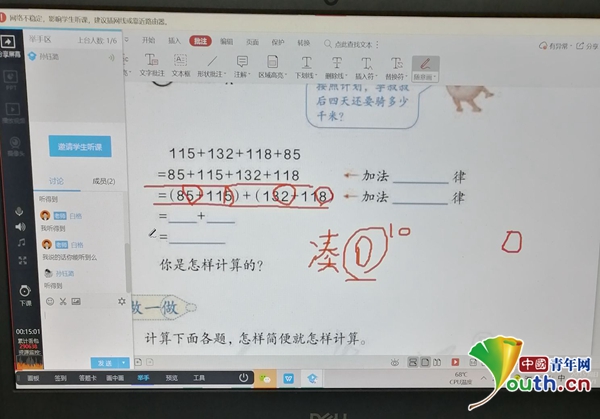 网络不稳定，影响学生听课，建议插网线或靠近路由器。
举手区 上台人数 1/6
孙钰璐
邀请学生听课
讨论 成员(2)
听得到
老师 白杨
我听得到
老师 白杨
我说的话你能听到么
孙钰璐
听得到
发送
下课
00:15:01
开始 插入 批注 编辑 页面 保护 转换 点此查找文本
有异常 分享
文字批注 文本框 形状批注 注解 区域高亮 下划线 删除线 插入符 替换符 随意画
按照计划，李叔叔
后四天还要骑多少
千米？
115+132+118+85
=85+115+132+118 ←加法______律
=(85+115)+(132+118) ←加法______律
=____+____
=____
凑 0 10
0
你是怎样计算的？
做一做
计算下面各题，怎样简便就怎样计算。
面板 签到 答题卡 画中画 举手 预览 工具
68℃
CPU温度
中
DELL
中國青年网
Youth.cn